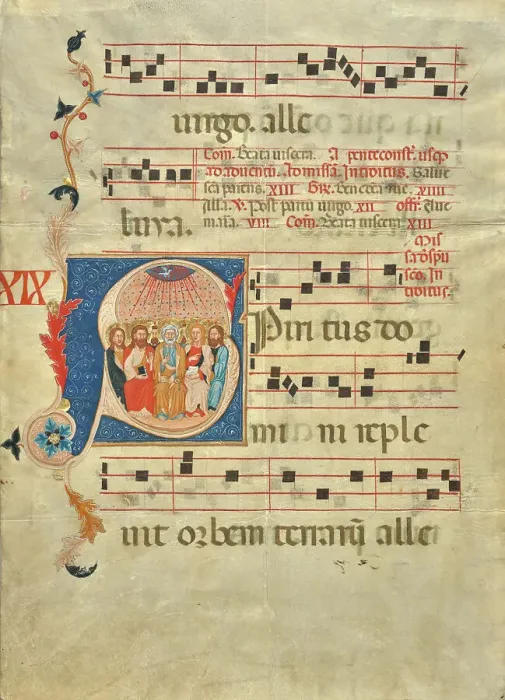 uirgo. alle
Com. Beata uiscera. A pentecost. usq
ad aduentū. Ad missā. Introitus. Salue
sca parens. XIII Grx. Benedca tue. XIIII
Alla. V. Post partū uirgo. XII offr. Aue
maria. VIII Com. Beata uiscera XIII
luya.
Mis
sa d spu
sco. In
troitus.
XIX
SPiri tus do
mi ni reple
uit orbem terrarū alle